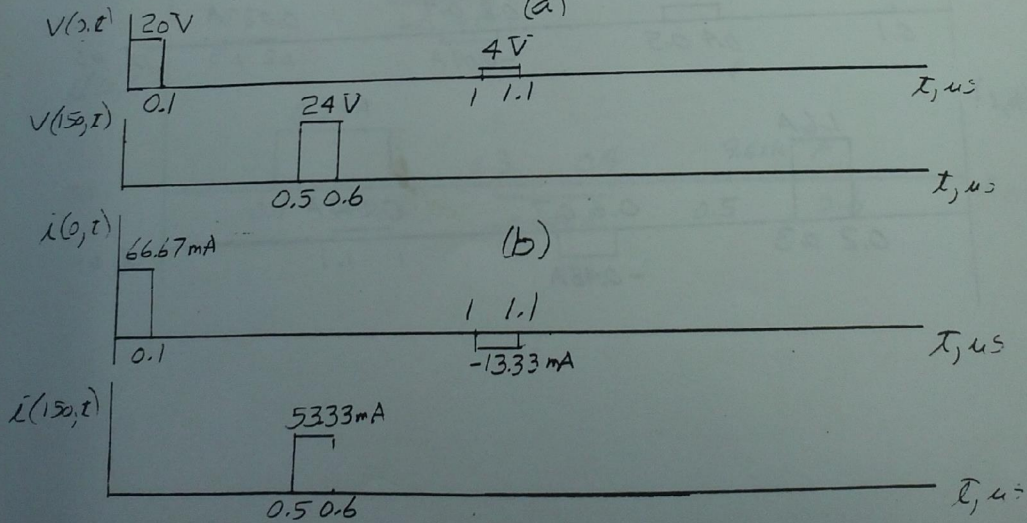 (a)
V(0,t) 20V
4V
0.1 1 1.1 t, us
V(150,t) 24V
0.5 0.6 t, us
i(0,t) 66.67mA (b)
1 1.1
0.1 -13.33mA t, us
i(150,t) 53.33mA
0.5 0.6 t, us